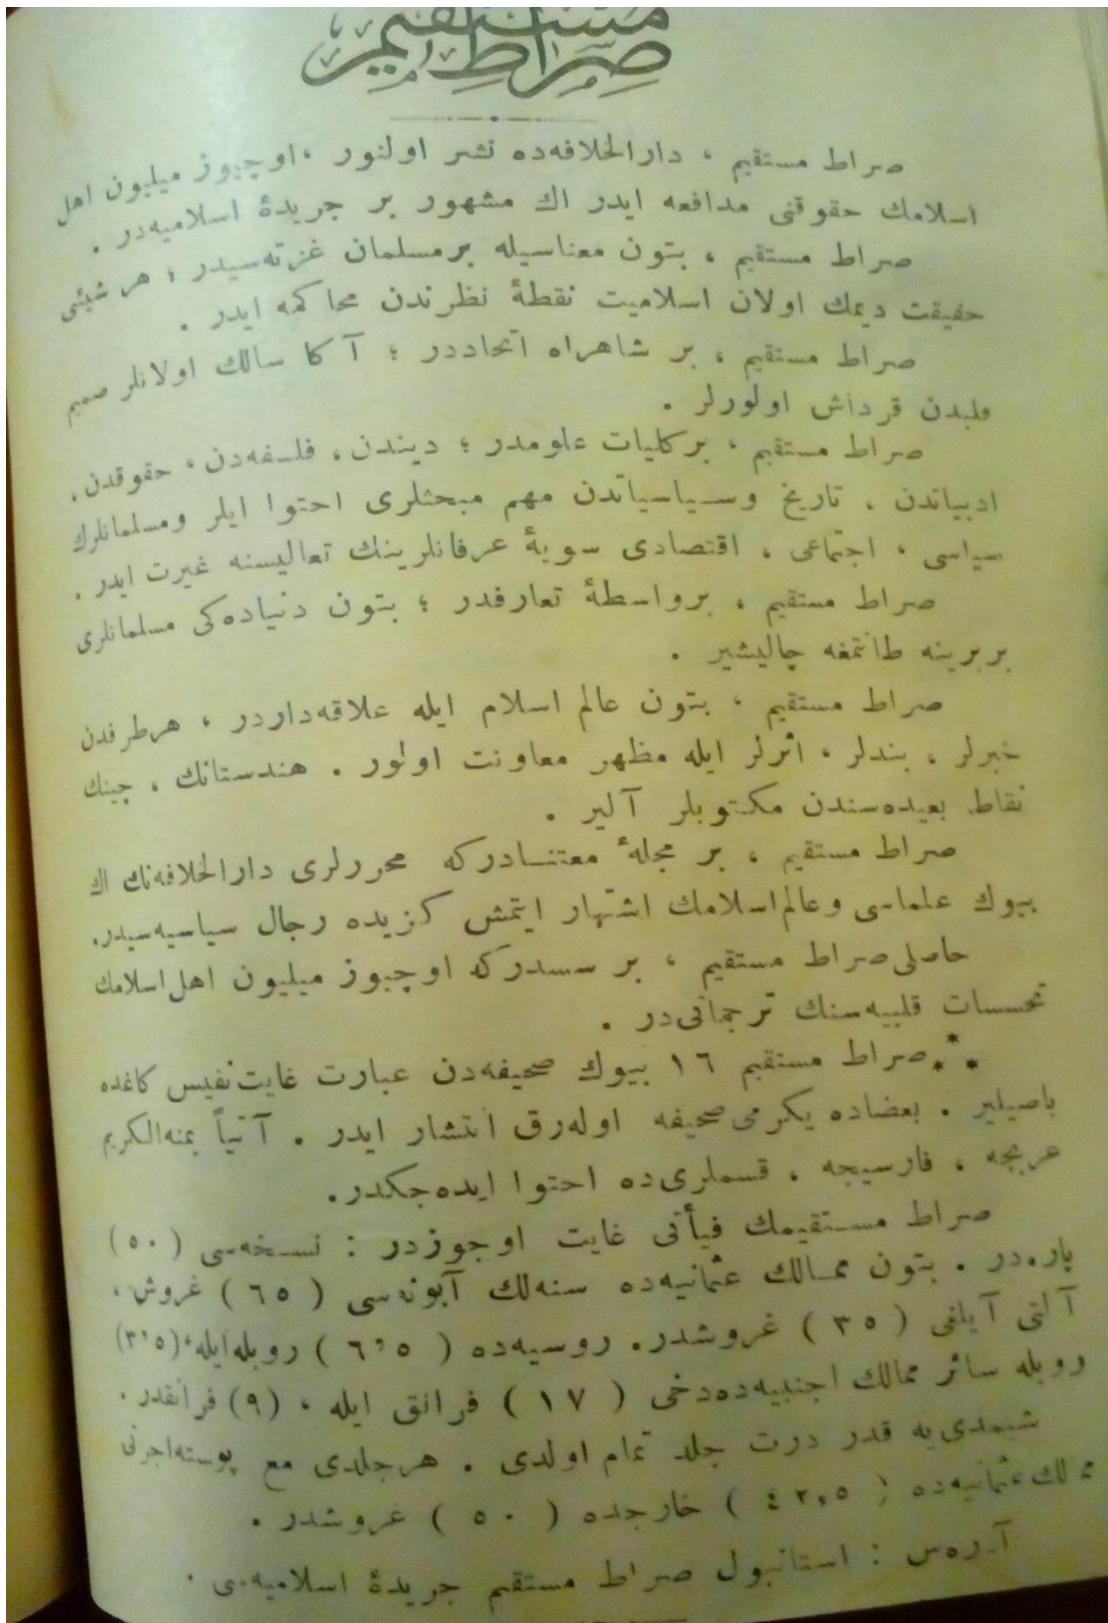 صراط مستقيم
صراط مستقيم ، دارالخلافه‌ده نشر اولنور ، اوچيوز ميليون اهل
اسلامك حقوقنى مدافعه ايدر اك مشهور بر جريدهٔ اسلاميه‌در .
صراط مستقيم ، بتون معناسيله برمسلمان غزته‌سيدر ؛ هر شيئى
حقيقت ديمك اولان اسلاميت نقطهٔ نظرندن محاكمه ايدر .
صراط مستقيم ، بر شاهراه اتحاددر ؛ آ كا سالك اولانلر صميم
قلبدن قرداش اولورلر .
صراط مستقيم ، بركليات علومدر ؛ ديندن ، فلسفه‌دن ، حقوقدن ،
ادبياتدن ، تاريخ وسياسياتدن مهم مبحثلرى احتوا ايلر ومسلمانلرك
سياسى ، اجتماعى ، اقتصادى سويهٔ عرفانلرينك تعاليسنه غيرت ايدر .
صراط مستقيم ، برواسطهٔ تعارفدر ؛ بتون دنياده‌كى مسلمانلرى
بربرينه طانتمغه چاليشير .
صراط مستقيم ، بتون عالم اسلام ايله علاقه‌داردر ، هرطرفدن
خبرلر ، بندلر ، اثرلر ايله مظهر معاونت اولور . هندستانك ، چينك
نقاط بعيده‌سندن مكتوبلر آلير .
صراط مستقيم ، بر مجلهٔ معتنادركه محررلرى دارالخلافه‌نك اك
بيوك علماسى وعالم‌اسلامك اشتهار ايتمش كزيده رجال سياسيه‌سيدر.
حاصلى صراط مستقيم ، بر سسدركه اوچيوز ميليون اهل‌اسلامك
تحسسات قلبيه‌سنك ترجمانى‌در .
⁂ صراط مستقيم ١٦ بيوك صحيفه‌دن عبارت غايت نفيس كاغده
باصيلير . بعضاده يكرمى صحيفه اوله‌رق انتشار ايدر . آتياً بمنه‌الكريم
عربجه ، فارسيجه ، قسملرى‌ده احتوا ايده‌جكدر.
صراط مستقيمك فيأتى غايت اوجوزدر : نسخه‌سى (٥٠)
پاره‌در . بتون ممالك عثمانيه‌ده سنه‌لك آبونه‌سى ( ٦٥ ) غروش ،
آلتى آيلغى ( ٣٥ ) غروشدر. روسيه‌ده ( ٦٬٥ ) روبله‌ايله ، (٣٬٥)
روبله سائر ممالك اجنبيه‌ده‌دخى ( ١٧ ) فرانق ايله ، (٩) فرانقدر .
شيمدى‌يه قدر درت جلد تمام اولدى . هرجلدى مع پوسته‌اجرتى
ممالك عثمانيه‌ده ( ٤٢,٥ ) خارجده ( ٥٠ ) غروشدر .
آدره‌س : استانبول صراط مستقيم جريدهٔ اسلاميه‌سى .